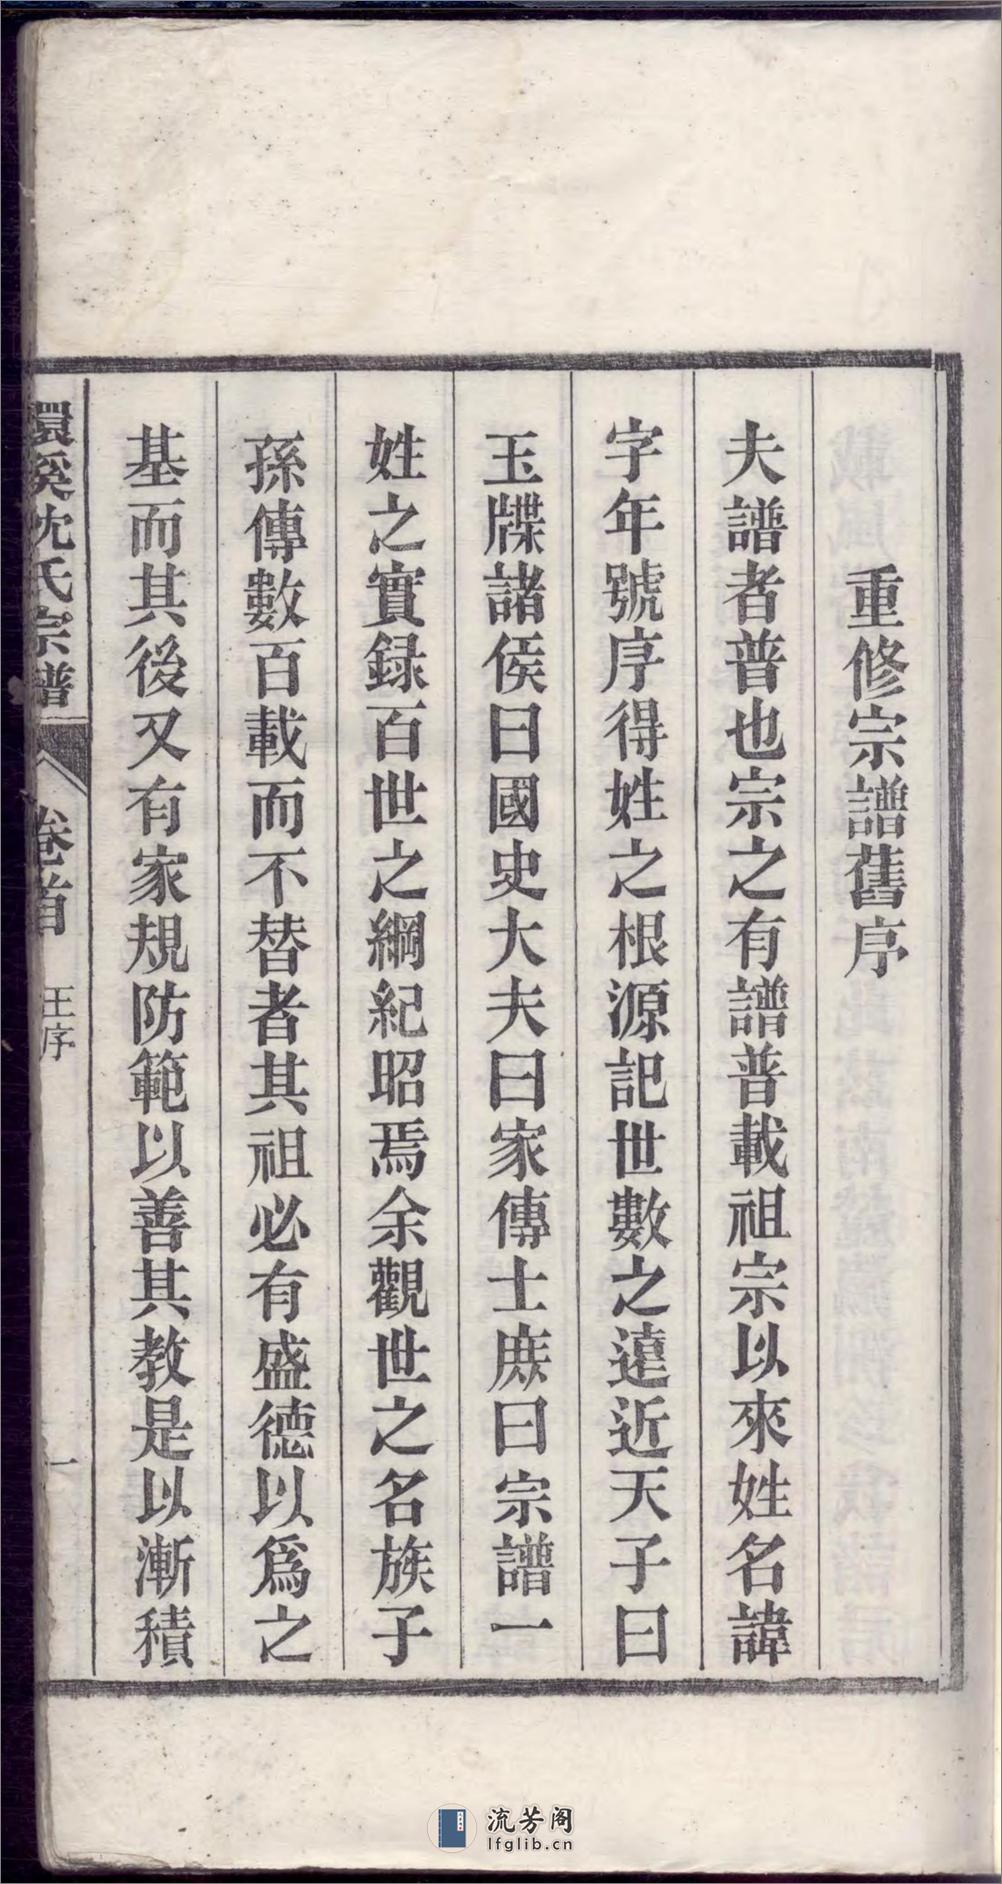 重修宗譜舊序
夫譜者普也宗之有譜普載祖宗以來姓名諱
字年號序得姓之根源記世數之遠近天子曰
玉牒諸侯曰國史大夫曰家傳士庶曰宗譜一
姓之實録百世之綱紀昭焉余觀世之名族子
孫傳數百載而不替者其祖必有盛德以爲之
基而其後又有家規防範以善其教是以漸積
環溪沈氏宗譜
卷首
王序
一
流芳阁
lfglib.cn